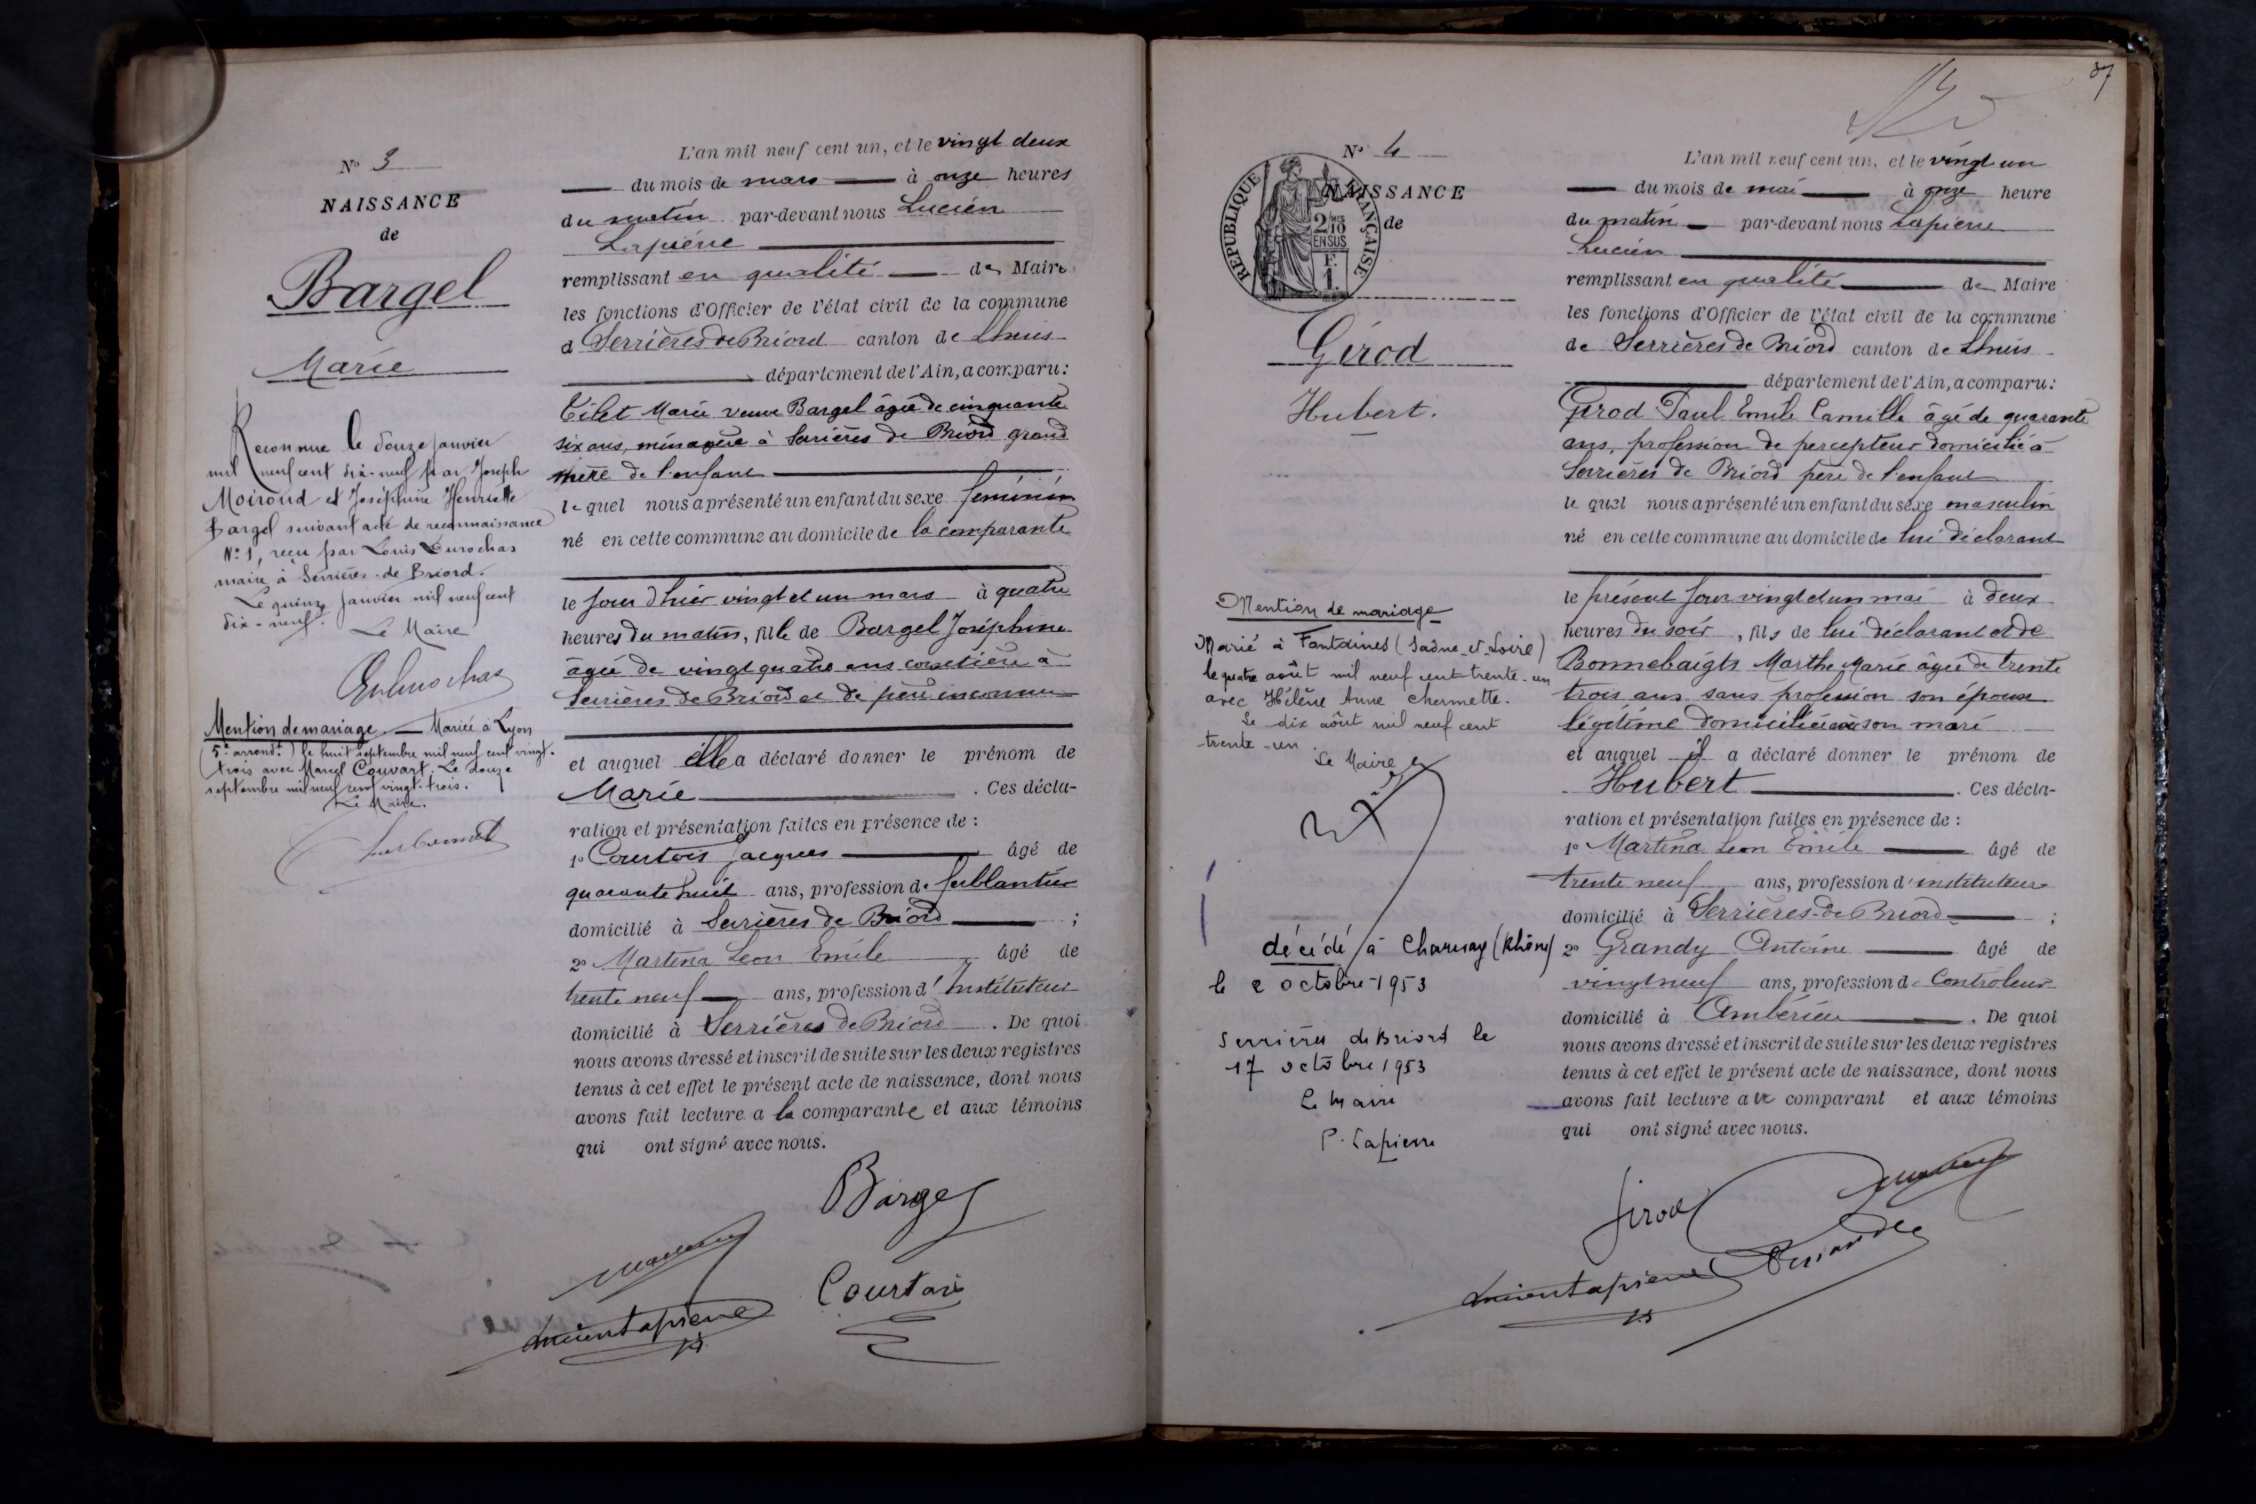 N° 3
NAISSANCE
de
Bargel
Marie
Reconnue le douze janvier
mil neuf cent dix-neuf par Joseph
Moiroud et Joséphine Henriette
Bargel suivant acte de reconnaissance
N° 1, reçu par Louis Durochas
maire à Serrières-de-Briord.
Le quinze janvier mil neuf cent
dix-neuf.
Le Maire
Mention de mariage — Mariée à Lyon
(5e arrondt) le huit septembre mil neuf cent vingt-
trois avec Marcel Couvart. Le douze
septembre mil neuf cent vingt-trois.
Le Maire.
L'an mil neuf cent un, et le vingt deux
du mois de mars à onze heures
du matin par-devant nous Lucien
Lapierre
remplissant en qualité de Maire
les fonctions d'Officier de l'état civil de la commune
d Serrières de Briord canton de Lhuis
département de l'Ain, a comparu :
Marie veuve Bargel âgée de cinquante
six ans, ménagère à Serrières de Briord grand
mère de l'enfant
lequel nous a présenté un enfant du sexe féminin
né en cette commune au domicile de la comparante
le jour d'hier vingt et un mars à quatre
heures du matin, fille de Bargel Joséphine
âgée de vingt quatre ans à
Serrières de Briord et de père inconnu
et auquel elle a déclaré donner le prénom de
Marie . Ces décla-
ration et présentation faites en présence de :
1° Courtois Jacques âgé de
quarante huit ans, profession de ferblantier
domicilié à Serrières de Briord ;
2° Martena Leon Emile âgé de
trente neuf ans, profession d'Instituteur
domicilié à Serrières de Briord . De quoi
nous avons dressé et inscrit de suite sur les deux registres
tenus à cet effet le présent acte de naissance, dont nous
avons fait lecture a la comparante et aux témoins
qui ont signé avec nous.
Bargel
Courtois
Lucien Lapierre
87
N° 4
NAISSANCE
de
REPUBLIQUE FRANÇAISE
2/10 EN SUS
F. 1.
Girod
Hubert.
Mention de mariage
Marié à Fontaines (Saône-et-Loire)
le quatre août mil neuf cent trente-un
avec Hélène Anne Chermette.
Le dix août mil neuf cent
trente-un.
Le Maire
décédé à Charnay (Rhône)
le 2 octobre 1953
Serrières de Briord le
17 octobre 1953
Le Maire
P. Lapierre
L'an mil neuf cent un, et le vingt un
du mois de mai à onze heure
du matin par-devant nous Lapierre
Lucien
remplissant en qualité de Maire
les fonctions d'Officier de l'état civil de la commune
de Serrières de Briord canton de Lhuis
département de l'Ain, a comparu :
Girod Paul Emile Camille âgé de quarante
ans, profession de percepteur domicilié à
Serrières de Briord père de l'enfant
le quel nous a présenté un enfant du sexe masculin
né en cette commune au domicile de lui déclarant
le présent jour vingt et un mai à deux
heures du soir, fils de lui déclarant et de
Bonnebaigts Marthe Marie âgée de trente
trois ans sans profession son épouse
légitime domiciliée son mari
et auquel il a déclaré donner le prénom de
Hubert . Ces décla-
ration et présentation faites en présence de :
1° Martena Leon Emile âgé de
trente neuf ans, profession d'instituteur
domicilié à Serrières-de-Briord ;
2° Grandy Antoine âgé de
vingt neuf ans, profession de Controleur
domicilié à Ambérieu . De quoi
nous avons dressé et inscrit de suite sur les deux registres
tenus à cet effet le présent acte de naissance, dont nous
avons fait lecture a le comparant et aux témoins
qui ont signé avec nous.
Girod
Lucien Lapierre